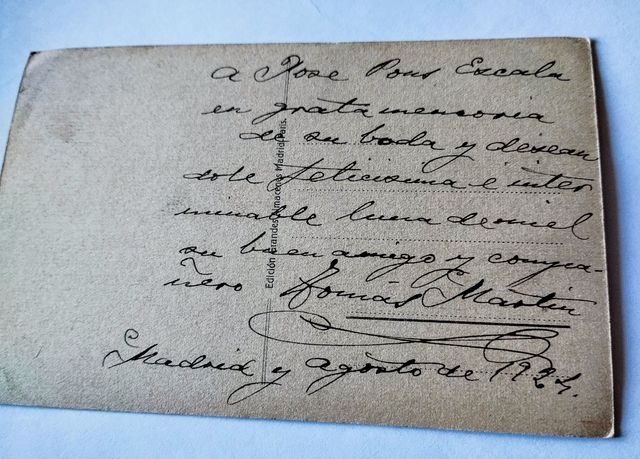 a Jose Pons Escala
en grata memoria
de su boda y desean
dole felicisima e inter
minable luna de miel
su buen amigo y compa-
ñero Tomás Martin
Madrid y agosto de 1924.
Edición Grandes Almacenes Madrid-Paris.